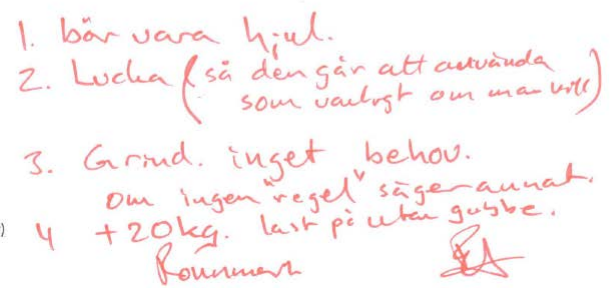 1. bör vara hjul.
2. Lucka (så den går att använda
som vanligt om man vill)
3. Grind. inget behov.
om ingen "regel" säger annat.
4 +20kg. last på utan gubbe.